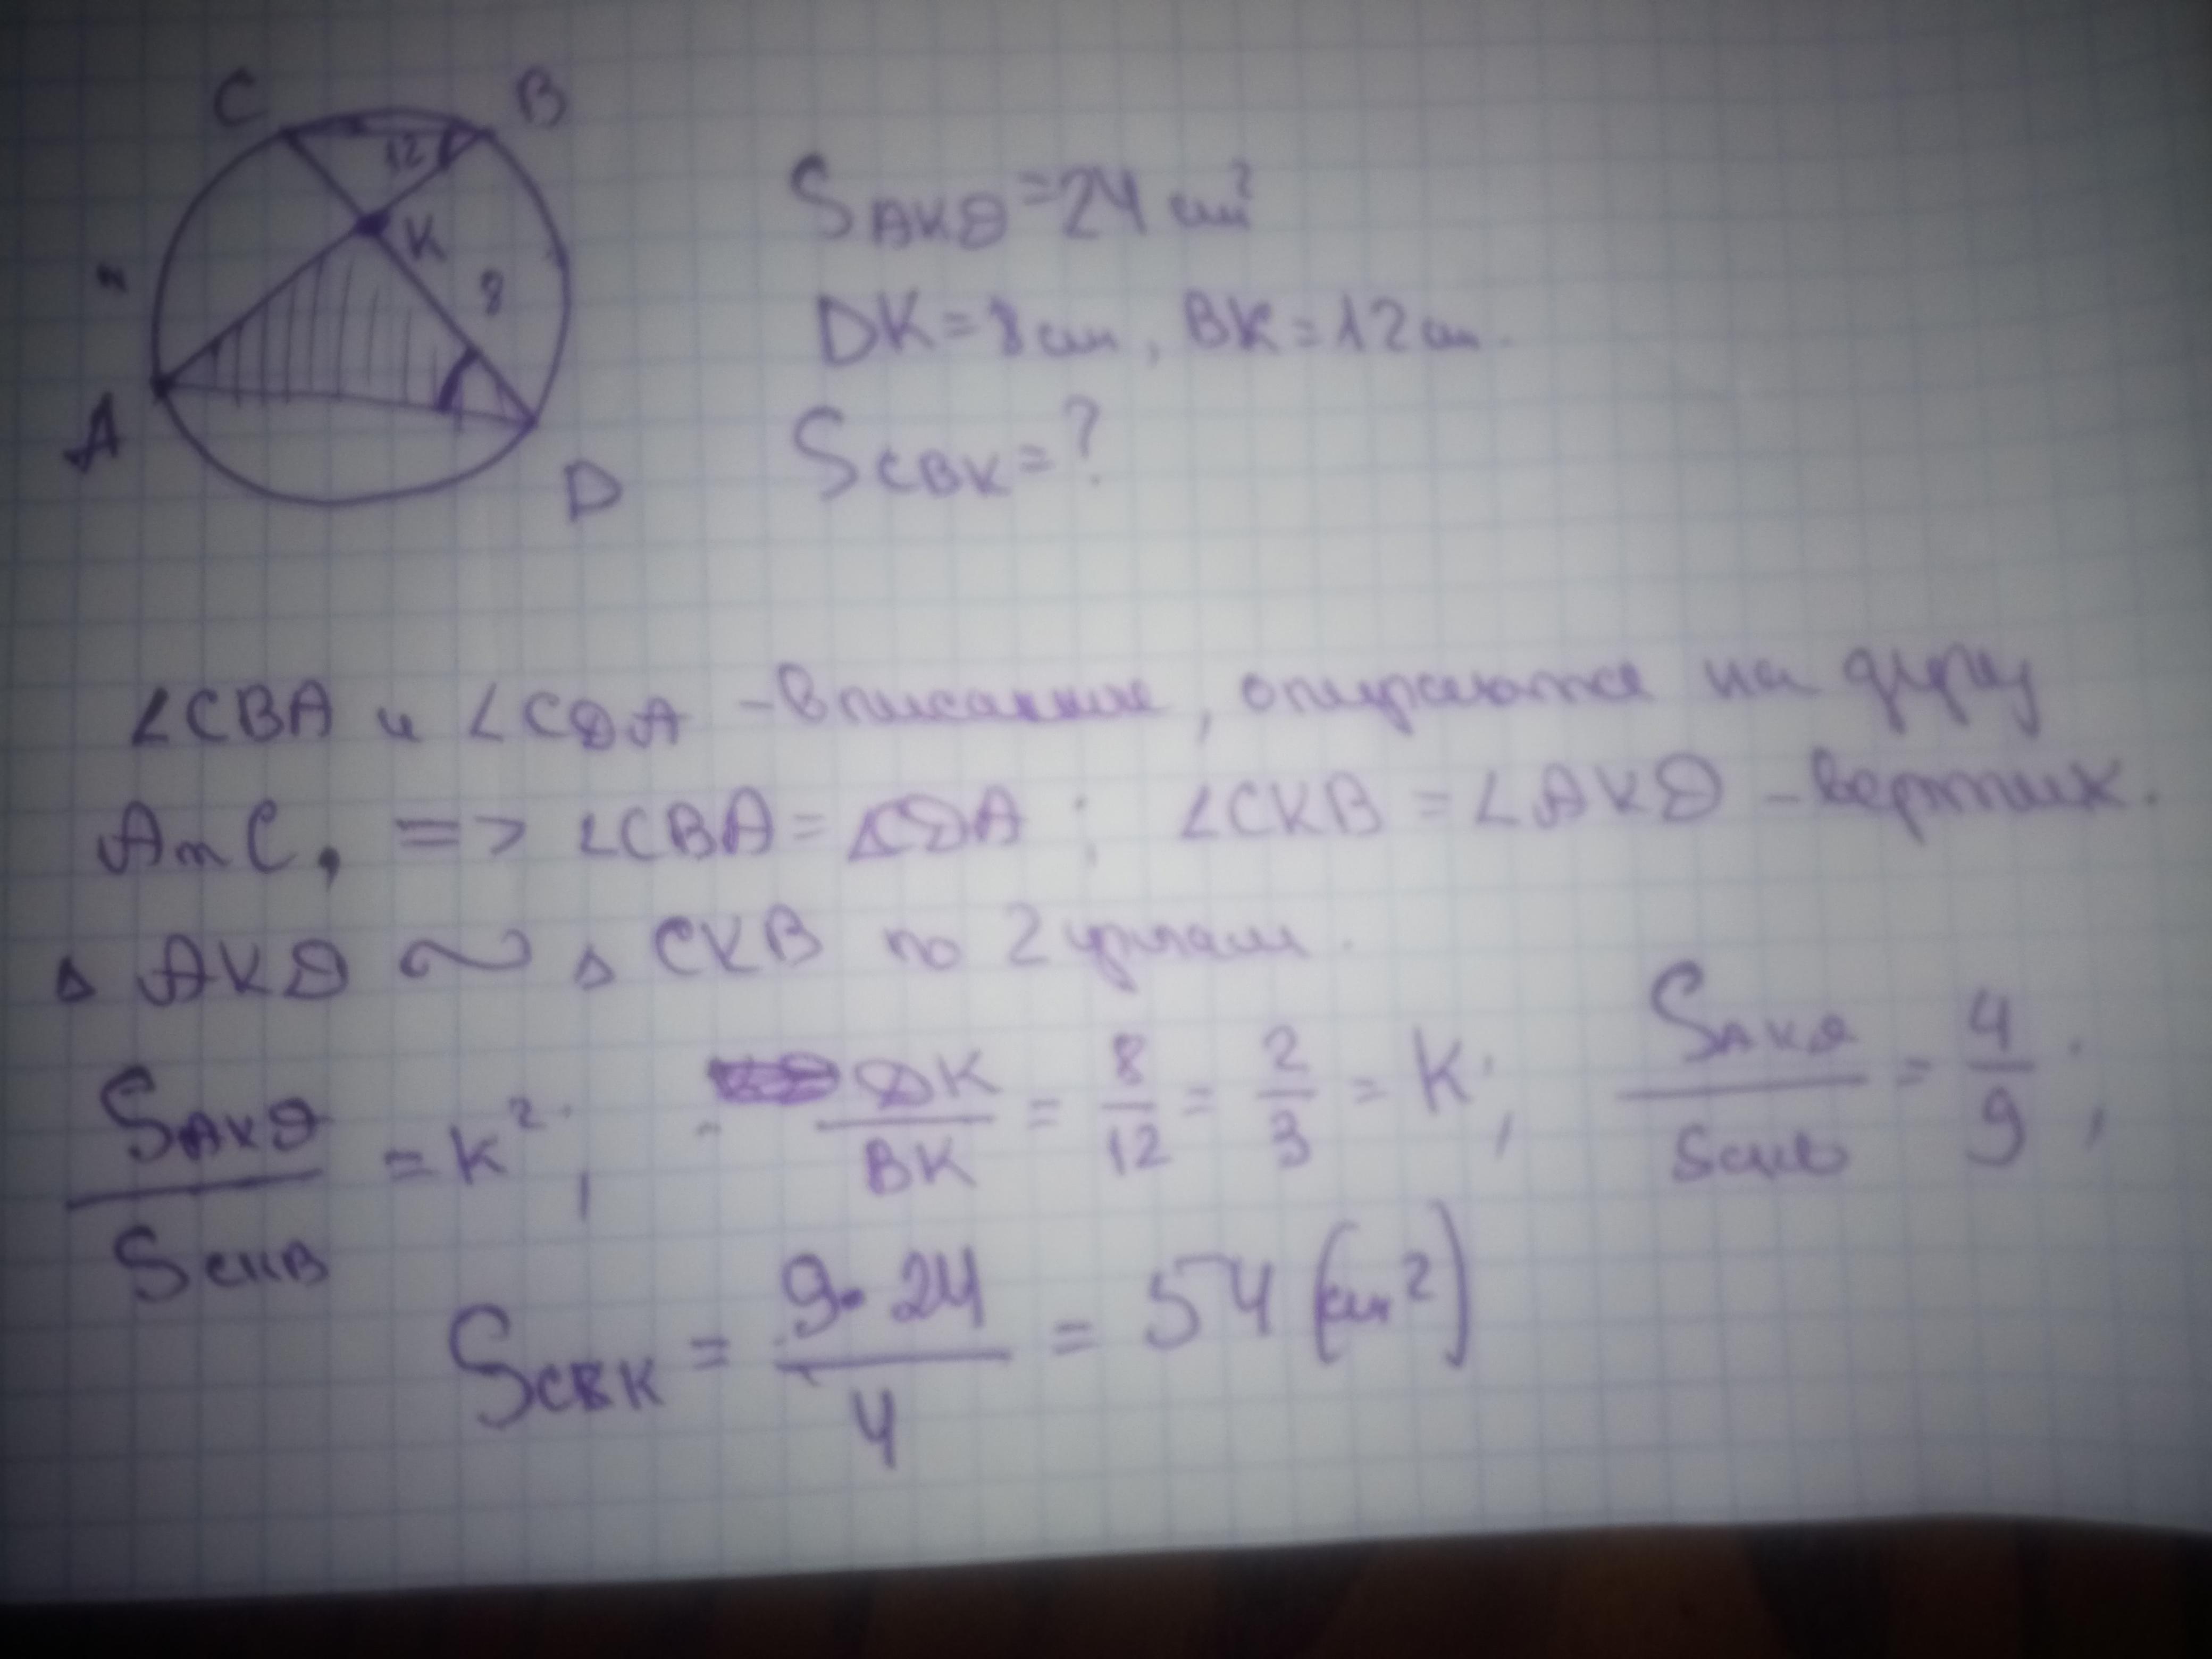 C B
12
K
8
m
A
D
S AKD = 24 см²
DK = 8 см, BK = 12 см.
S CBK = ?
∠CBA и ∠CDA - вписанные, опираются на дугу
AmC, => ∠CBA = ∠CDA ; ∠CKB = ∠AKD - вертик.
Δ AKD ∼ Δ CKB по 2 углам.
S AKD / S CKB = K² ; DK / BK = 8/12 = 2/3 = K ; S AKD / S CKB = 4/9 ;
S CBK = 9 · 24 / 4 = 54 (см²)